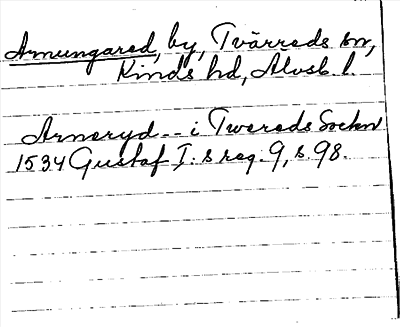 Amungared, by, Tvärreds sn,
Kinds hd, Älvsb. l.
Arneryd -- i Twereds Sockn
1534 Gustaf I:s reg. 9, s. 98.